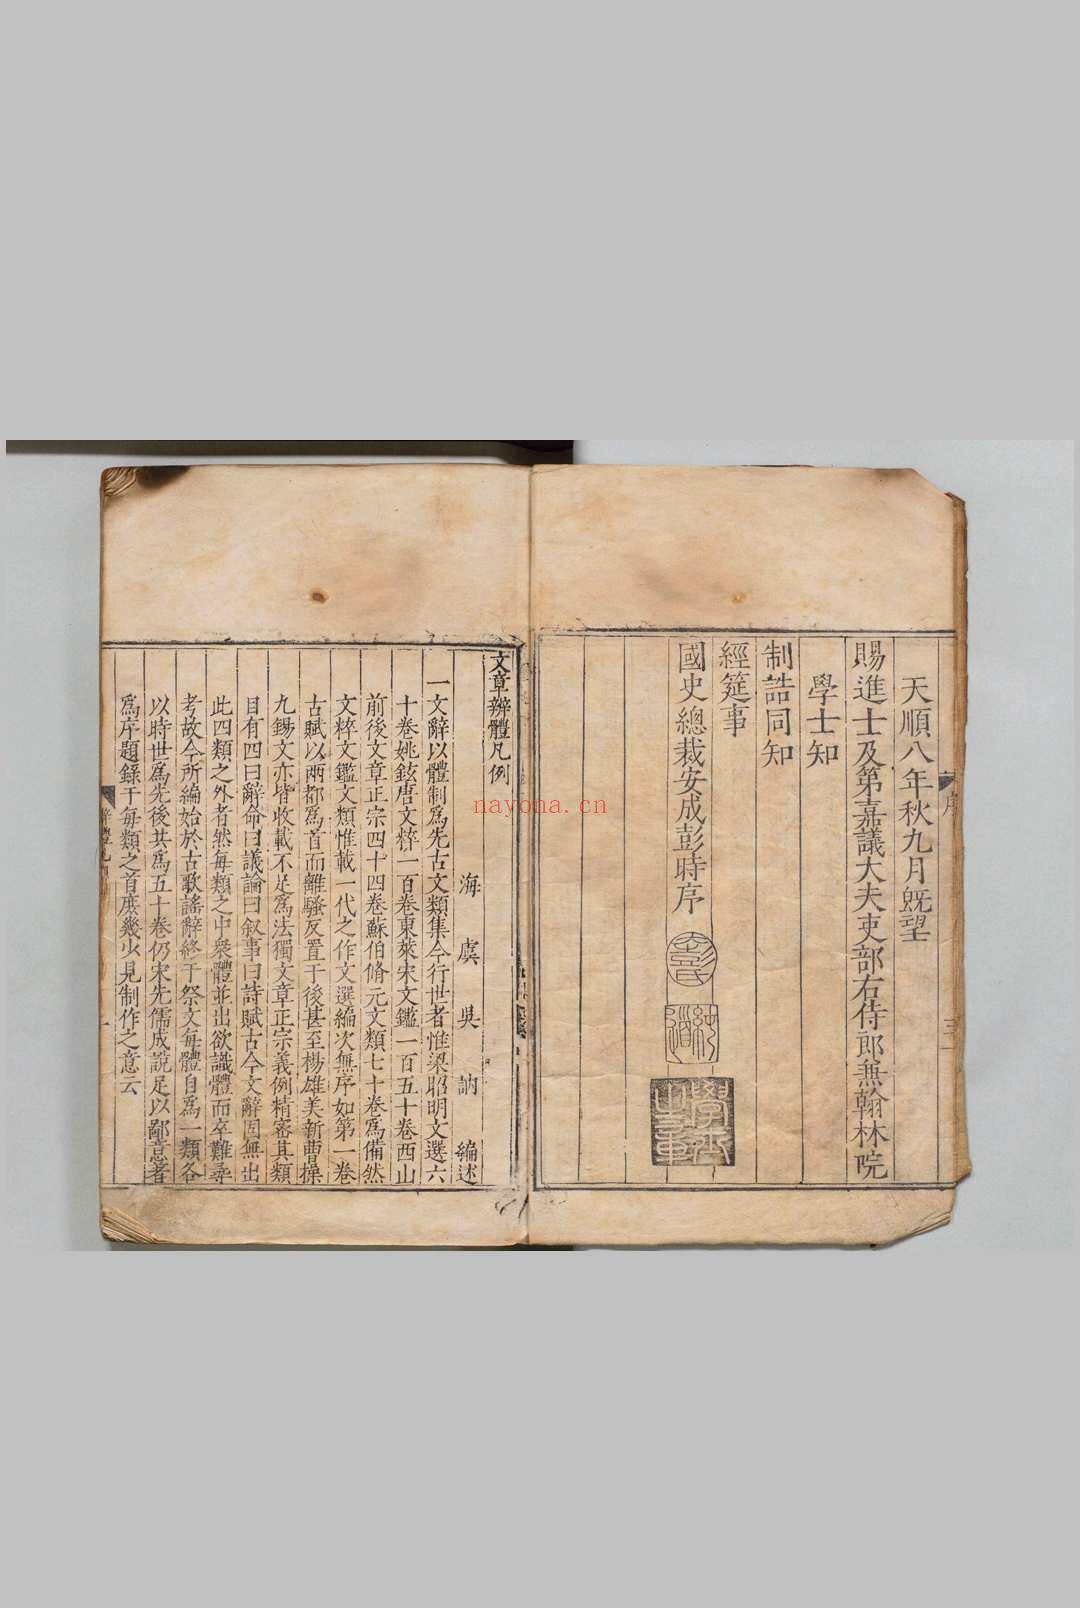 天順八年秋九月旣望
賜進士及第嘉議大夫吏部右侍郎兼翰林院
學士知
制誥同知
經筵事
國史總裁安成彭時序
序
三
文章辨體凡例
海虞吳訥編述
一文辭以體制爲先古文類集今行世者惟梁昭明文選六
十卷姚鉉唐文粹一百卷東萊宋文鑑一百五十卷西山
前後文章正宗四十四卷蘇伯脩元文類七十卷爲備然
文粹文鑑文類惟載一代之作文選編次無序如第一卷
古賦以兩都爲首而離騷反置于後甚至楊雄美新曹操
九錫文亦皆收載不足爲法獨文章正宗義例精密其類
目有四曰辭命曰議論曰叙事曰詩賦古今文辭固無出
此四類之外者然每類之中衆體並出欲識體而卒難尋
考故今所編始於古歌謠辭終于祭文每體自爲一類各
以時世爲先後共爲五十卷仍宋先儒成說足以鄙意者
爲序題錄于每類之首庶幾少見制作之意云
一
nayona.cn